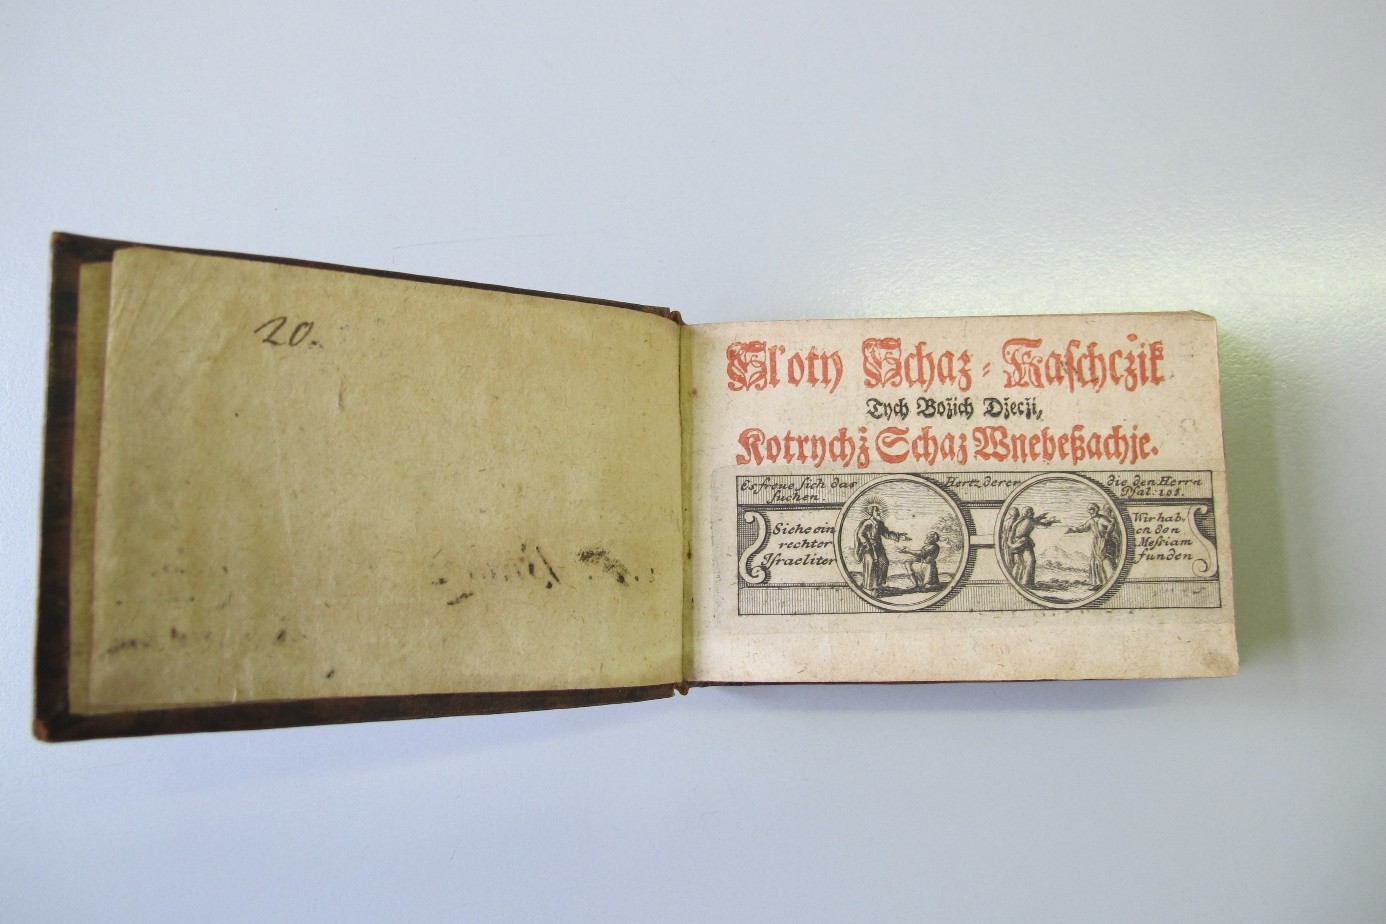 20.
Sl'oty Schaz-Kaschcžik
Tych Božich Džecži,
Kotrychž Schaz Wnebeßachje.
Es freue sich das Hertz derer die den Herrn
suchen. Psal: 105.
Siehe ein
rechter
Jsraeliter
Wir hab,
en den
Messiam
funden